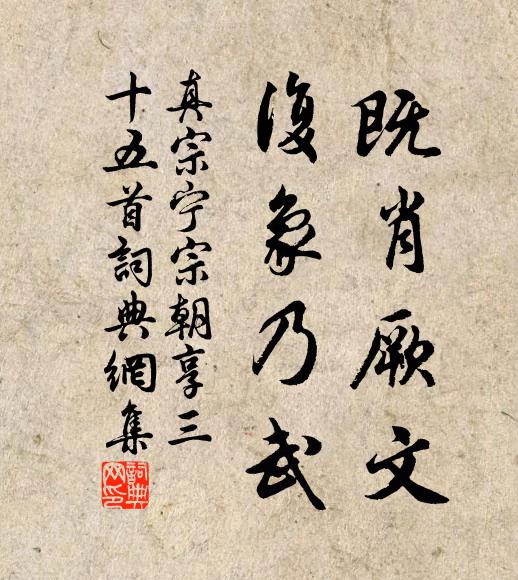 既肖厥文
復象乃武
真宗宁宗朝享三
十五首詞典網集
詞典
网印